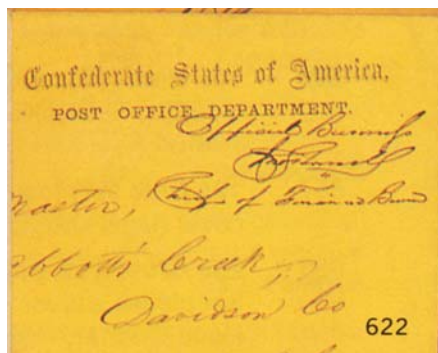 Confederate States of America,
POST OFFICE DEPARTMENT.
Official Business
Chief of Finance Bureau
master,
bbott's Creek,
Davidson Co
622